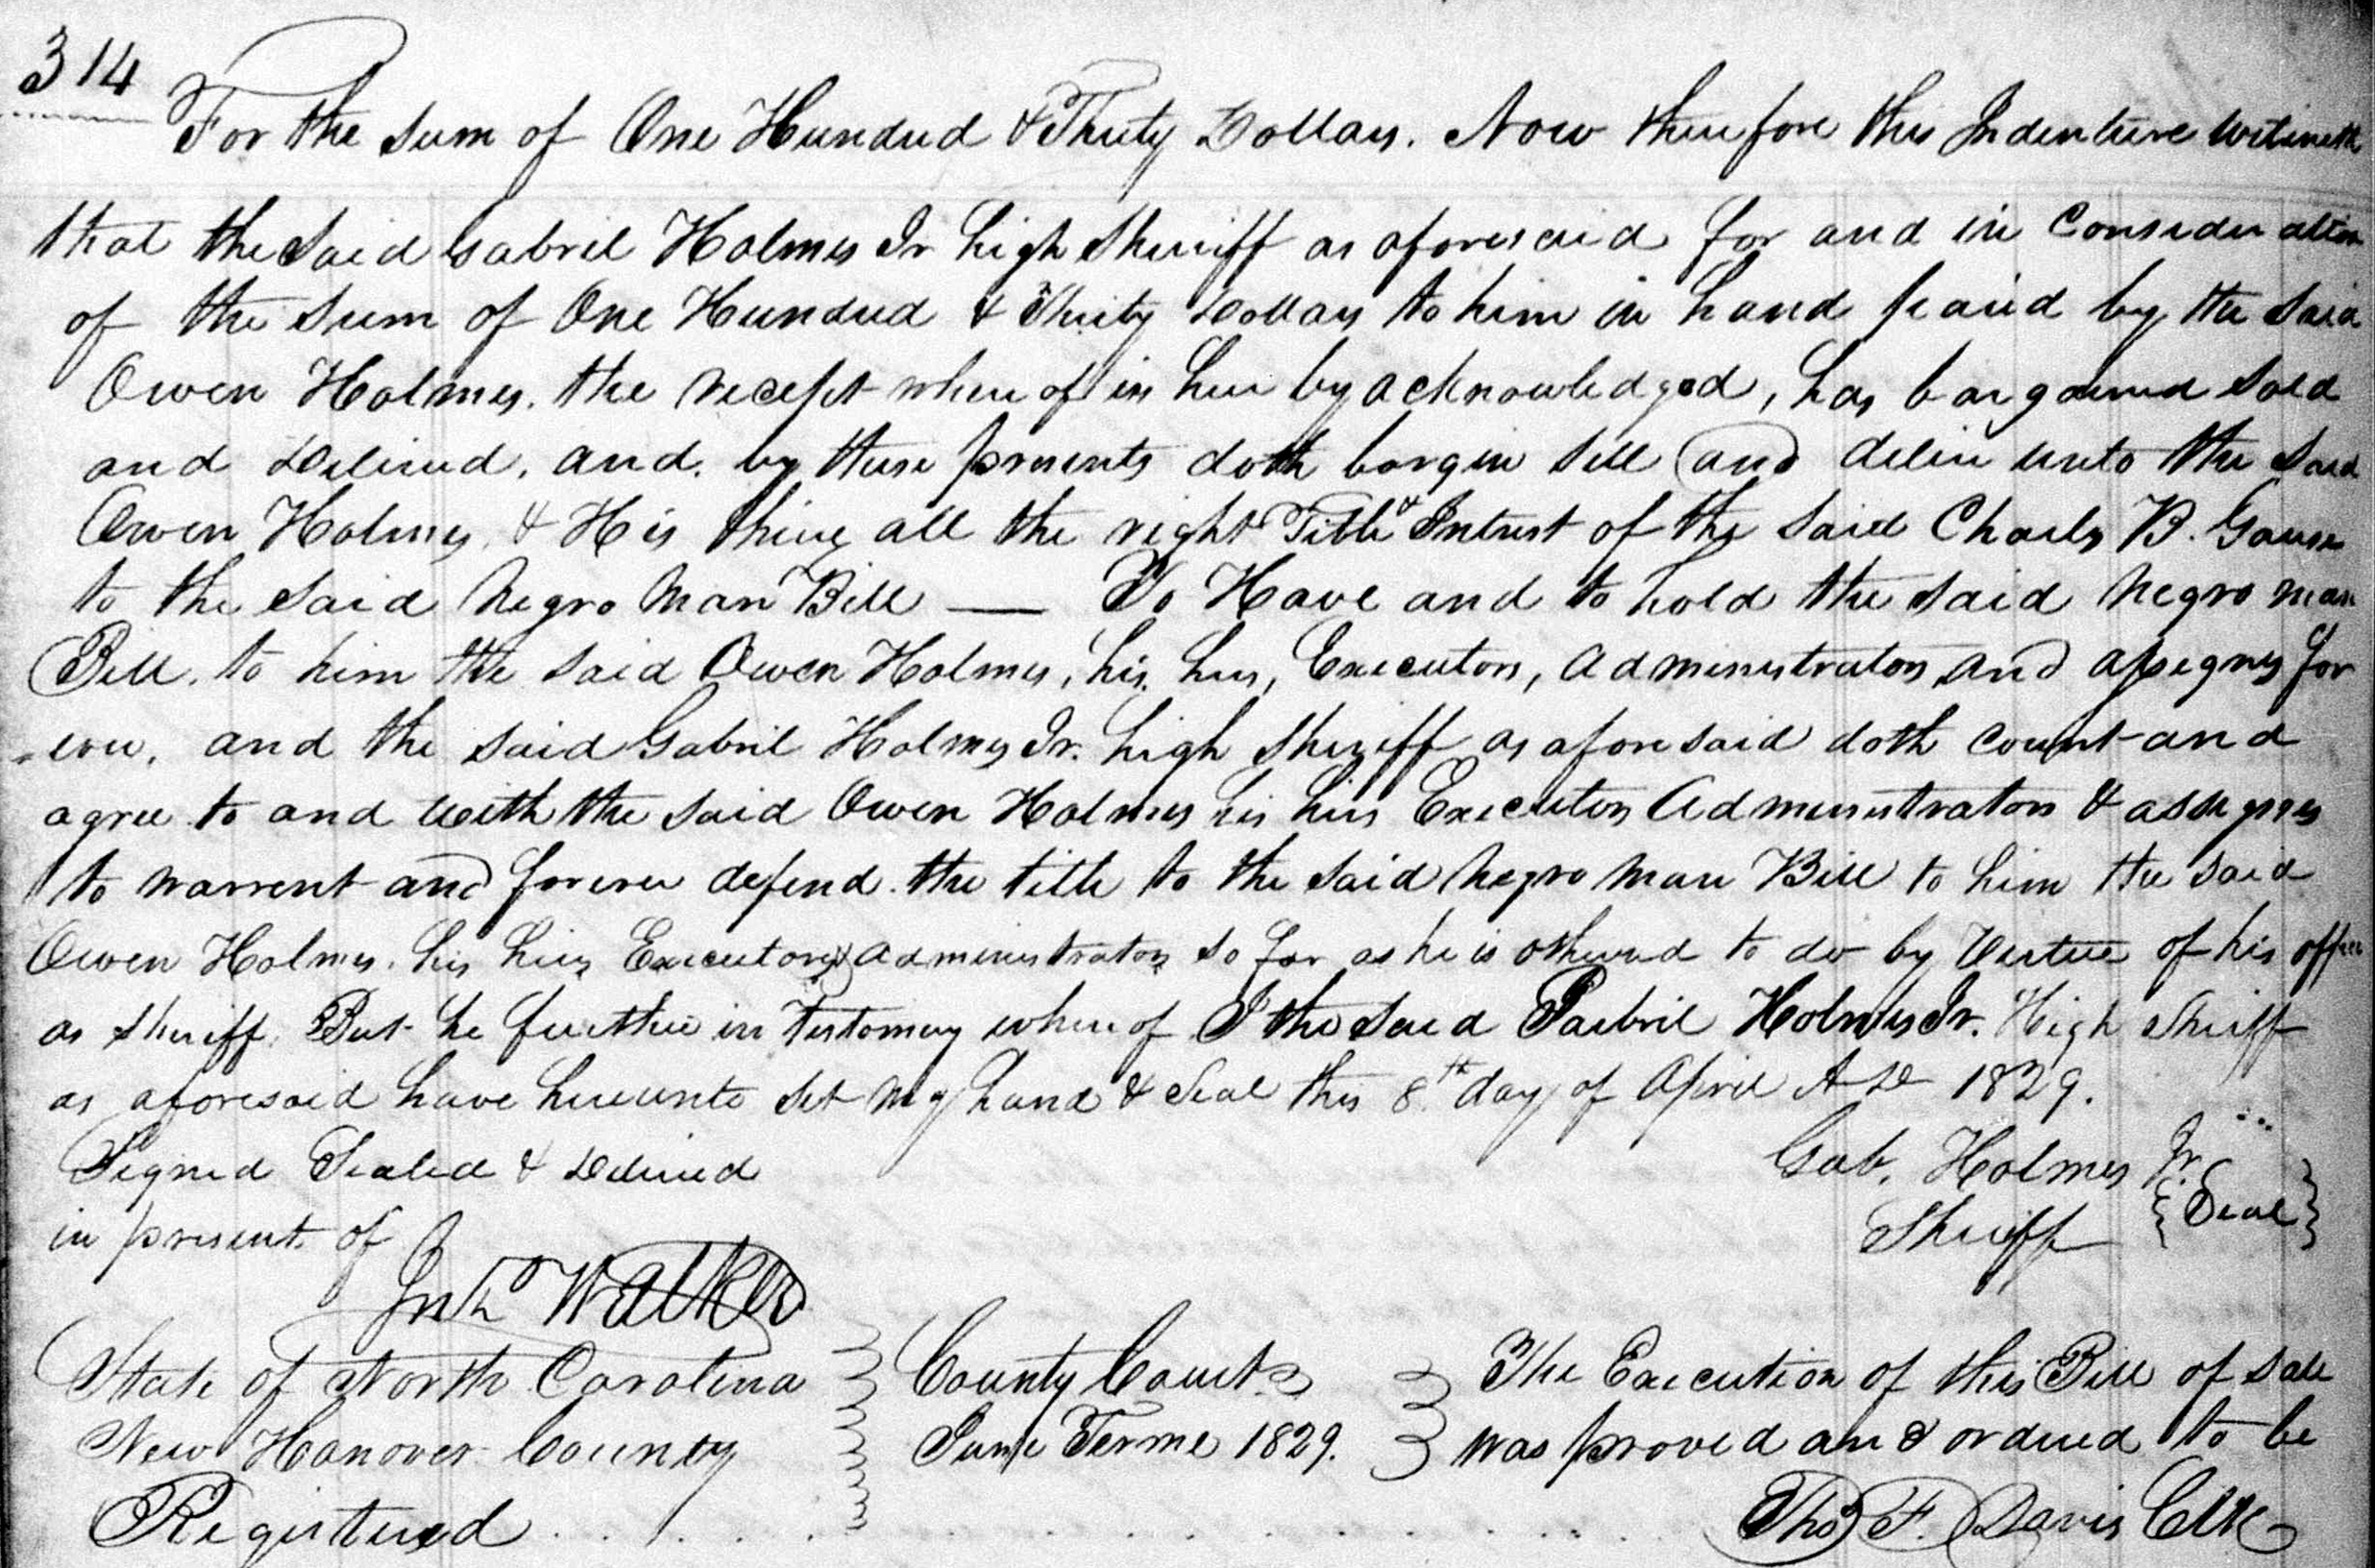 314
For the Sum of One Hundred & Thirty Dollars. Now therefore this Indenture witnesseth
that the said Gabriel Holmes Jr high Sheriff as aforesaid for and in Consideration
of the sum of One Hundred & Thirty Dollars to him in hand paid by the said
Owen Holmes. the recept where of is here by acknowledged, has bargained sold
and Delivered, and, by these presents doth bargin sell and deliver unto the said
Owen Holmes, & His heirs all the right Title & Intrest of the said Charles B. Gause
to the said Negro Man Bill — To Have and to hold the said Negro man
Bill. to him the said Owen Holmes, his heirs, Executors, administrators and assigns for
=ever, and the said Gabriel Holmes Jr. high Sheriff as aforesaid doth and
agree to and with the said Owen Holmes his heirs Executors Administrators & assignes
to warrent and forever defend the title to the said Negro Man Bill to him the said
Owen Holmes. his heirs Executors & administrators so far as he is to do by Vertue of his office
as Sheriff. But he further in Testomony where of I the said Holmes Jr. High Sheriff
as aforesaid have hereunto set my hand & Seal this 8th day of April AD 1829.
Signed Sealed & Delivered
in present of
Gab. Holmes Jr.
Sheriff {Seal}
Walker
State of North Carolina } County Court } The Execution of this Bill of Sale
New Hanover County } June Terme 1829. } was proved and ordered to be
Registered . . . . . . . . . . . Thos F. Davis Clk